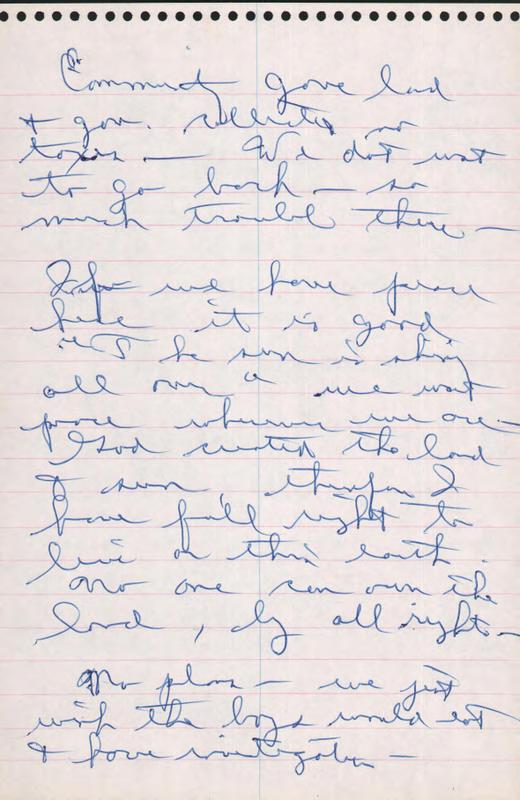 Community gave land
& gov. collects no
taxes. — We don't want
to go back — so
much trouble there —
If we have peace
here it is good
"The sun is shining
all over" we want
peace wherever we are —
God created the land
& sun, therefore I
have full right to
live on this earth.
No one can own the
land, by all rights —
No plans — we just
wish the boys would eat
& have investigation —